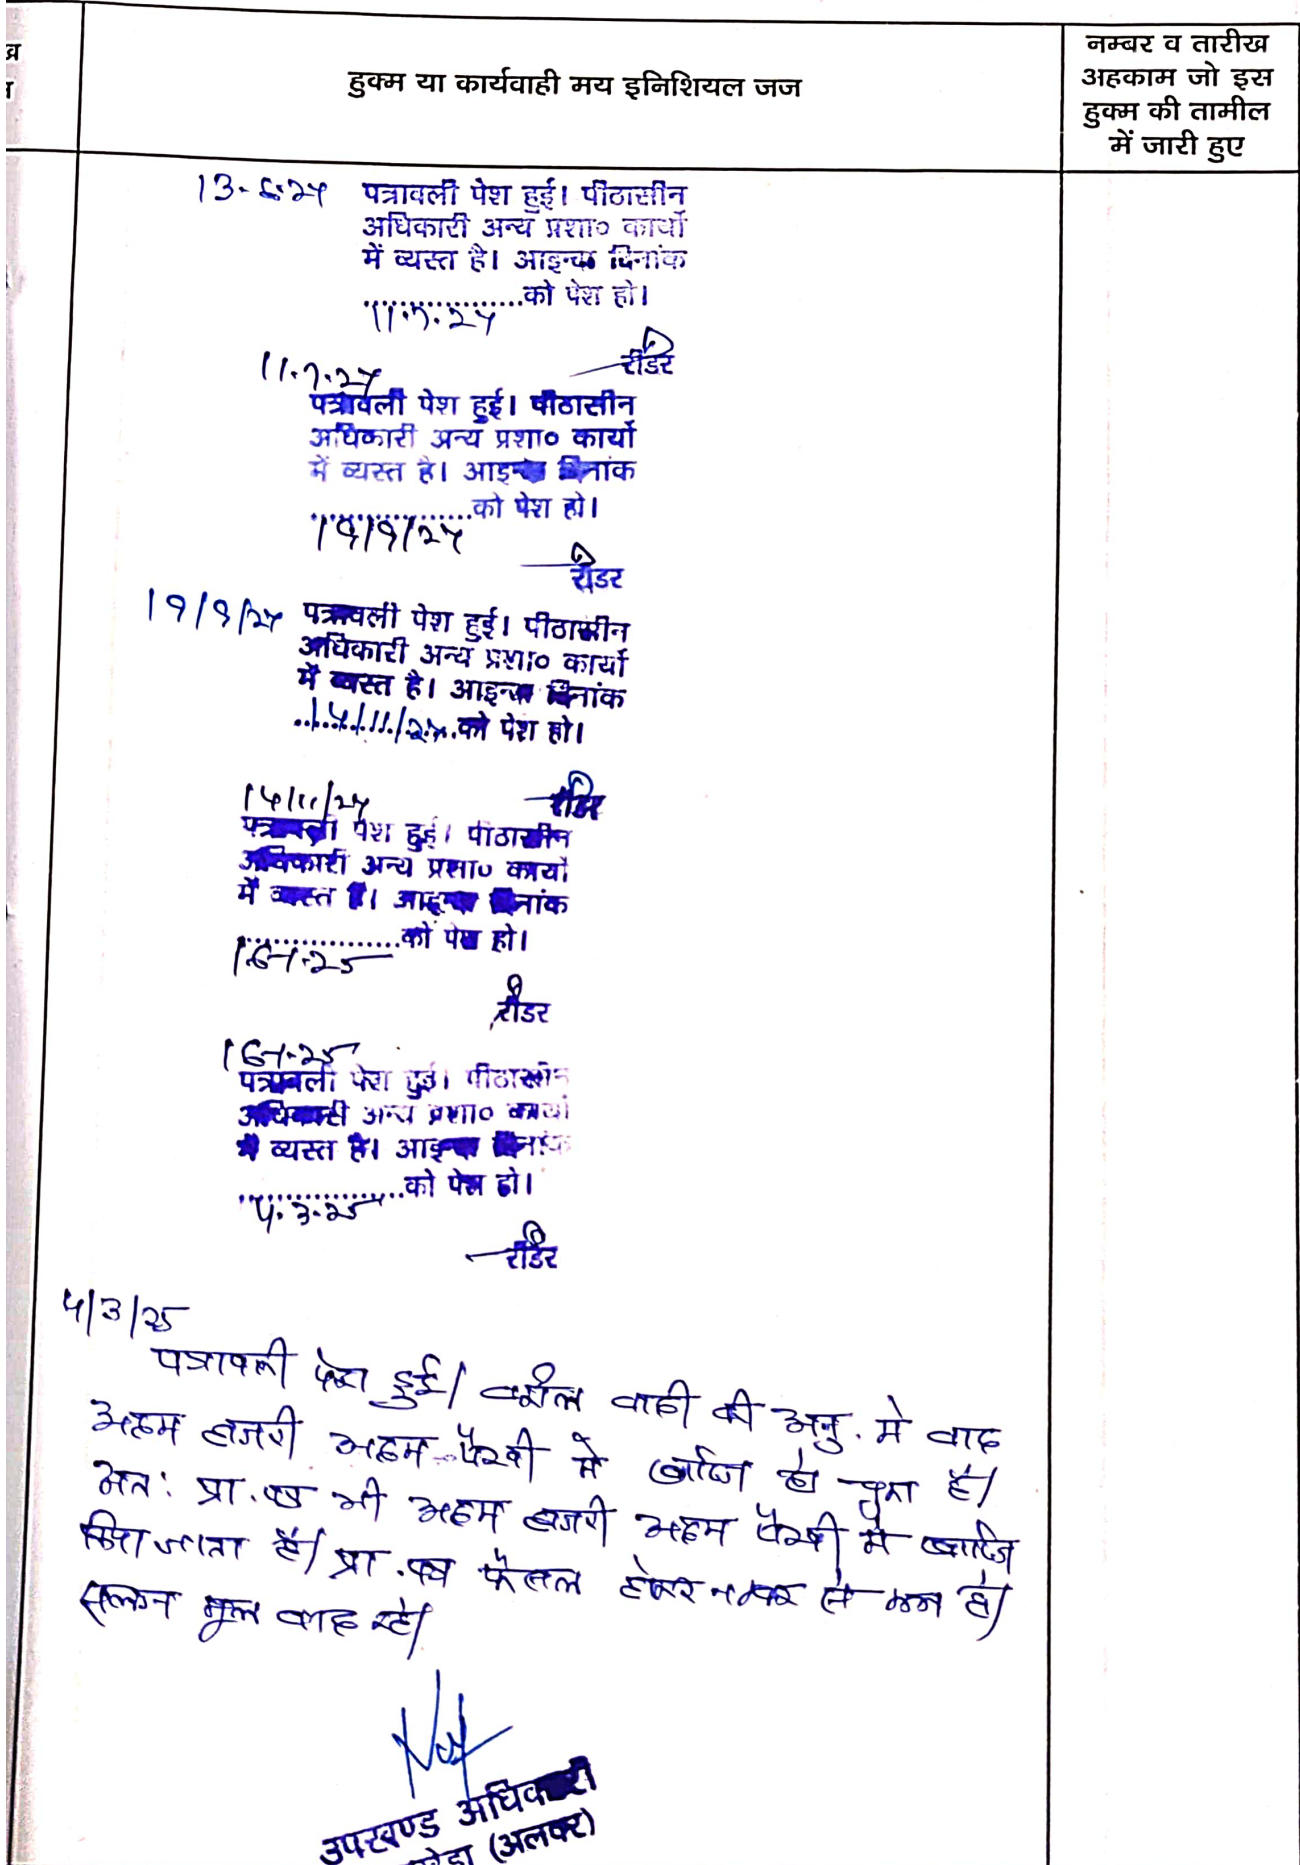 हुक्म या कार्यवाही मय इनिशियल जज
नम्बर व तारीख
अहकाम जो इस
हुक्म की तामील
में जारी हुए
13-6-24 पत्रावली पेश हुई। पीठासीन
अधिकारी अन्य प्रशा० कार्यो
में व्यस्त है। आइन्दा दिनांक
..................को पेश हो।
11.7.24
रीडर
11.7.24
पत्रावली पेश हुई। पीठासीन
अधिकारी अन्य प्रशा० कार्यो
में व्यस्त है। आइन्दा दिनांक
..................को पेश हो।
19/9/24
रीडर
19/9/24 पत्रावली पेश हुई। पीठासीन
अधिकारी अन्य प्रशा० कार्यो
में व्यस्त है। आइन्दा दिनांक
14/11/24 को पेश हो।
रीडर
14/11/24
पत्रावली पेश हुई। पीठासीन
अधिकारी अन्य प्रशा० कार्यो
में व्यस्त है। आइन्दा दिनांक
..................को पेश हो।
16-1-25
रीडर
16-1-25
पत्रावली पेश हुई। पीठासीन
अधिकारी अन्य प्रशा० कार्यो
में व्यस्त है। आइन्दा दिनांक
..................को पेश हो।
4.3.25
रीडर
4/3/25
पत्रावली पेश हुई। वकील वादी की अनु. मे वाद
अदम हाजरी अदम पैरवी मे खारिज हो चुका है।
अतः प्रा.पत्र भी अदम हाजरी अदम पैरवी मे खारिज
किया जाता है। प्रा.पत्र फैसल होकर नम्बर से कम हो।
संलग्न मूल वाद रहे।
उपखण्ड अधिकारी
(अलवर)